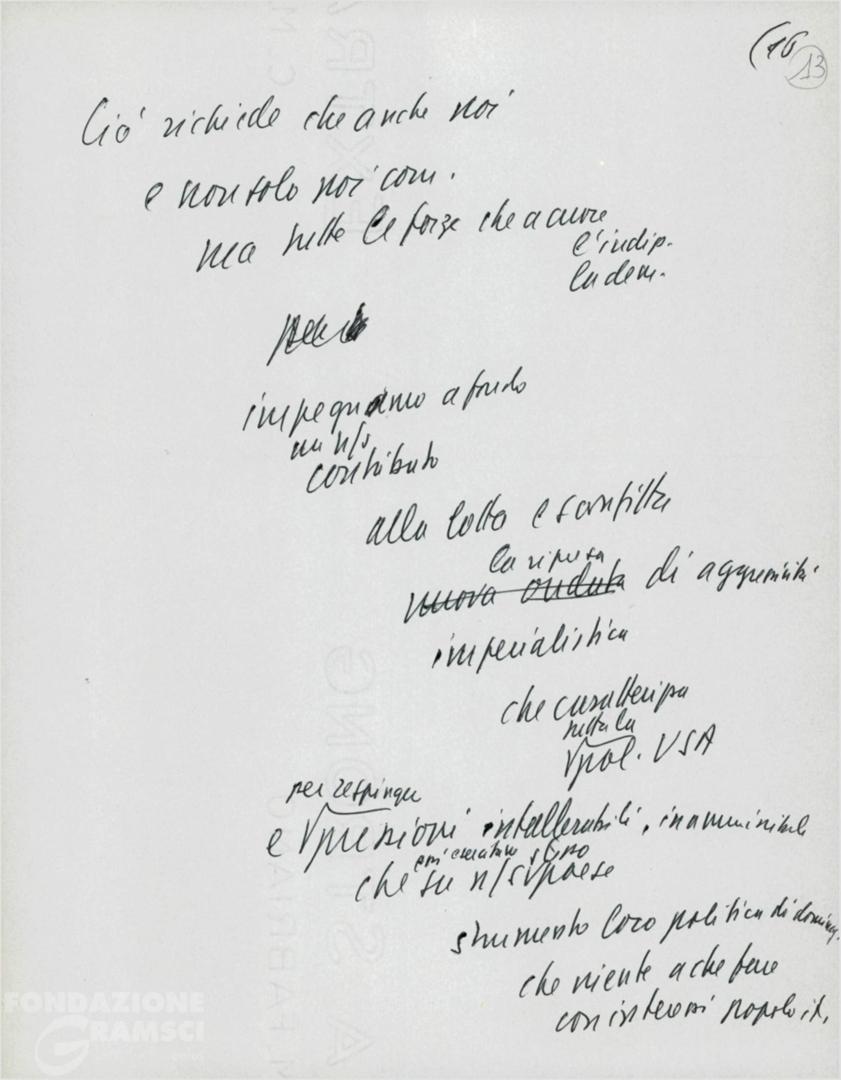 (16
13
Ciò richiede che anche noi
e non solo noi com.
ma tutte le forze che a cuore
l'indip.
la dem.
impegniamo a fondo
un n/s
contributo
alla lotta e sconfitta
la ripresa
nuova ondata di aggressività
imperialistica
che caratterizza
tutta la
pol. USA
per respingere
e pressioni intollerabili, inammissibili
che su n/s paese
strumento loro politica di dominaz.
che niente a che fare
con interessi popolo it.
FONDAZIONE
GRAMSCI